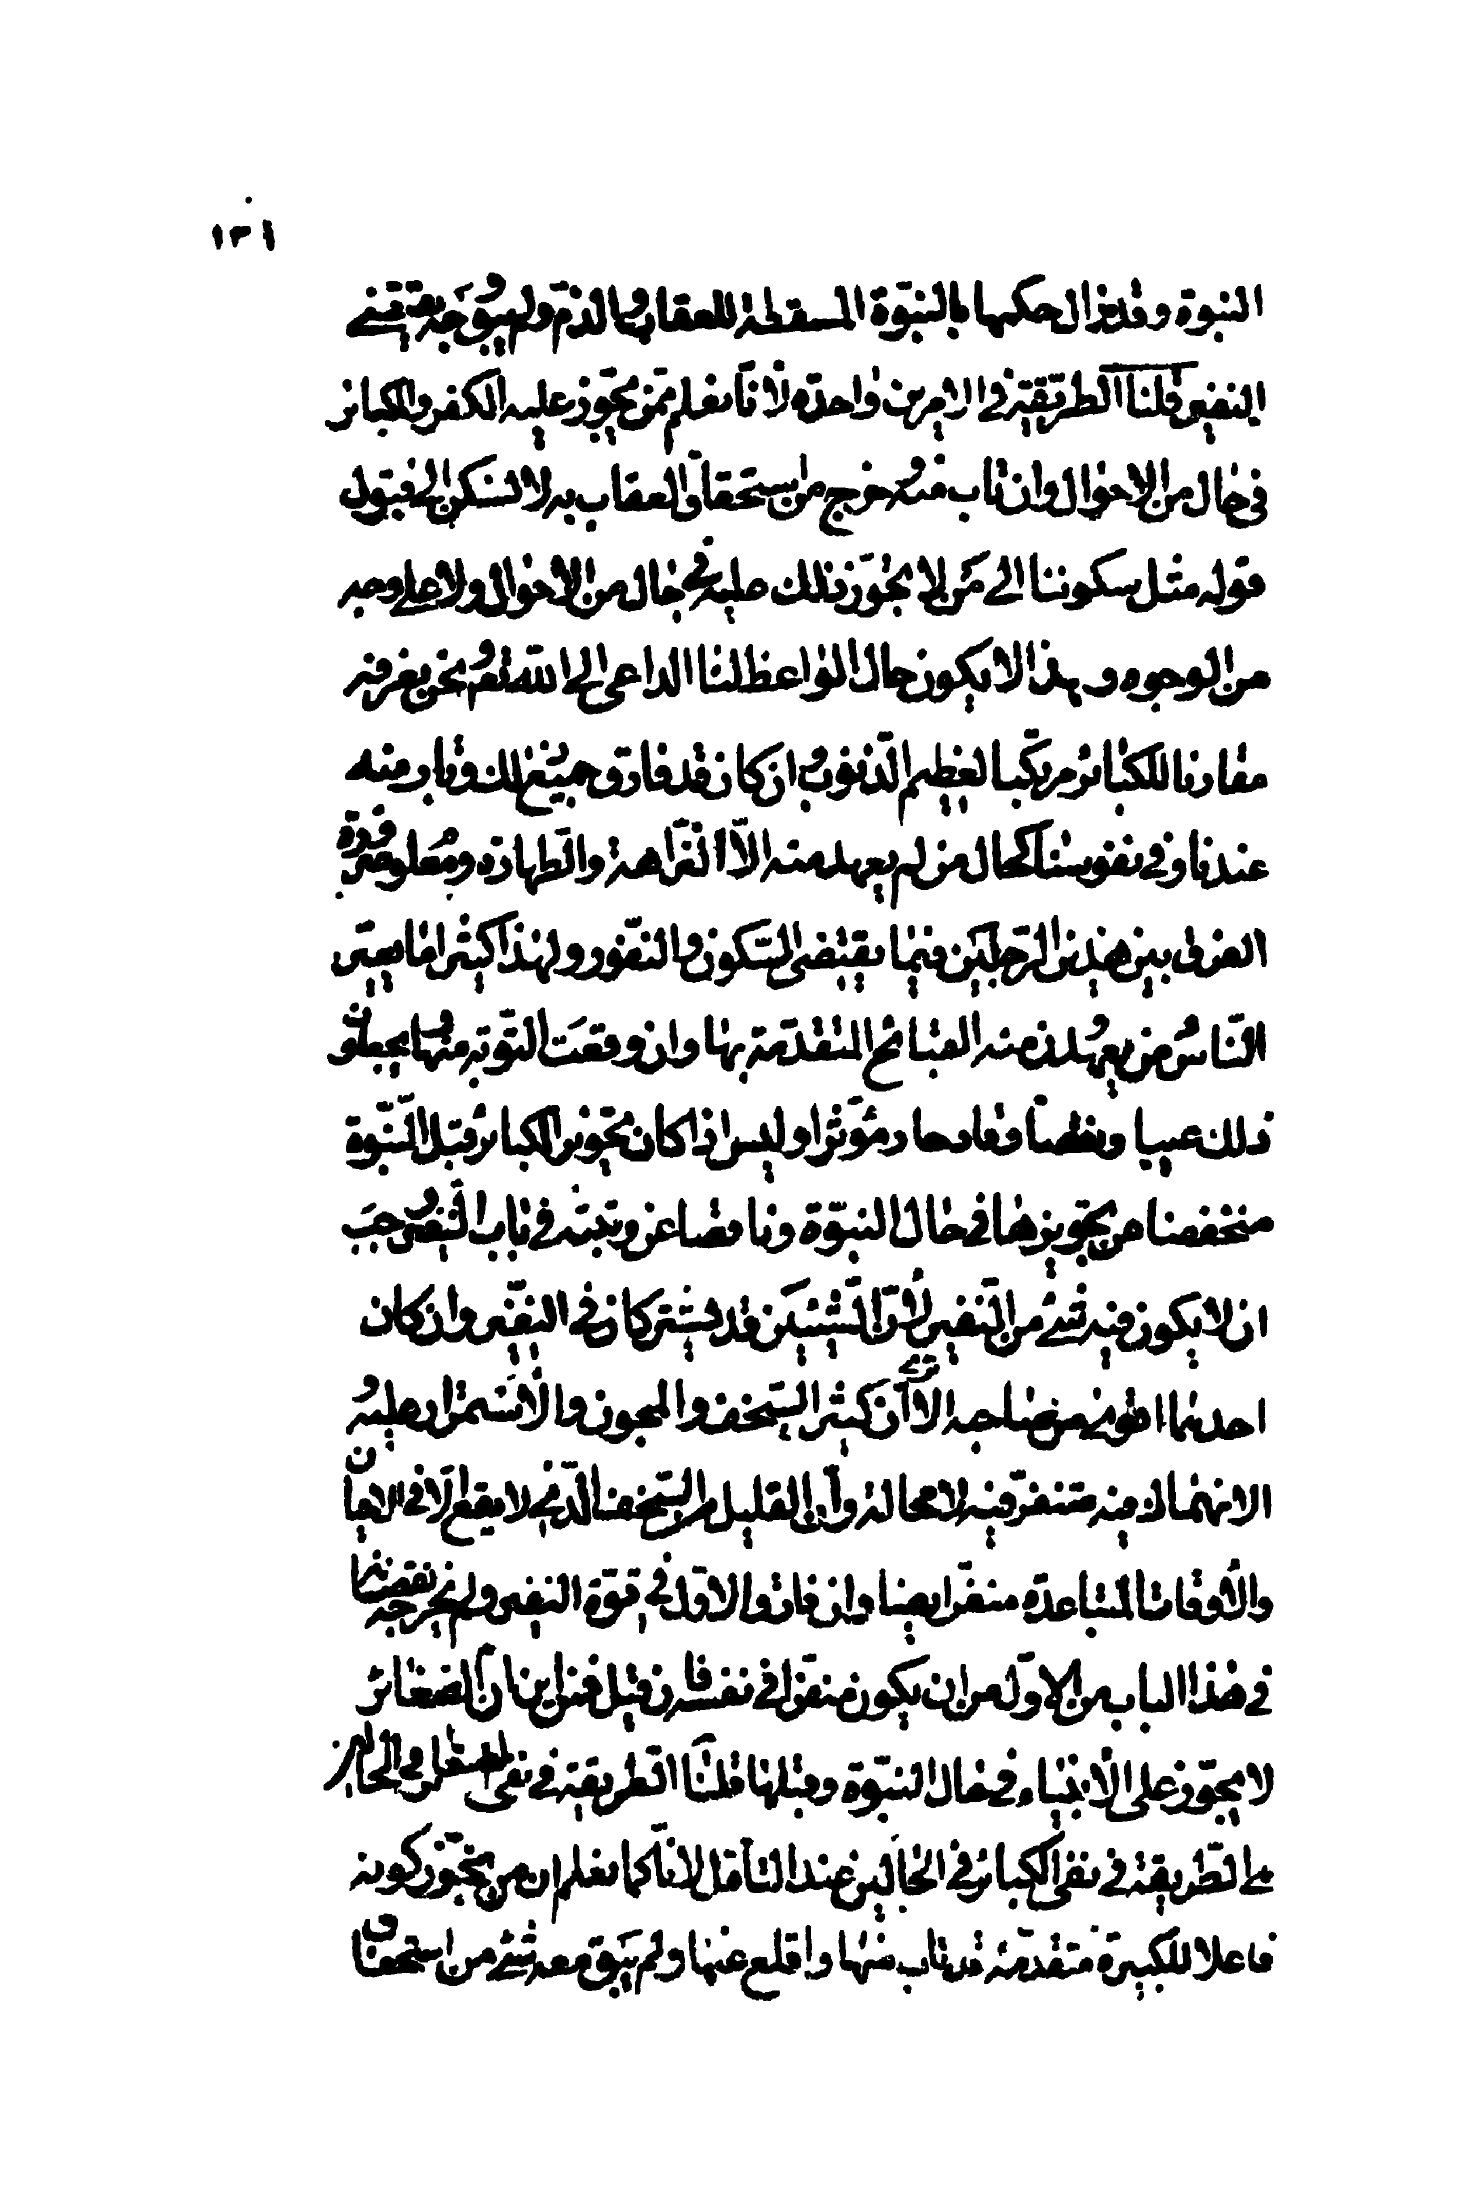 ١٣٦
النبوة وقد زال حكمها بالنبوة المسقطة للعقاب والذم ولم يبق وجه يقتضى
التنفير قلنا الطريقة فى الامرين واحدة لأنا نعلم ممن يجوز عليه الكفر والكبائر
فى حال من الاحوال وان تاب منه وخرج من استحقاق العقاب به لا نسكن الى قبول
قوله مثل سكوننا الى من لا يجوز ذلك عليه فى حال من الاحوال ولا على وجه
من الوجوه ولهذا لا يكون حال الواعظ لنا الداعى الى الله تعالى ونحن نعرفه
مقارنا للكبائر مرتكبا لعظيم الذنوب وان كان قد فارق جميع ذلك وتاب منه
عندنا وفى نفوسنا كحال من لم يعهد منه الّا النزاهة والطهارة ومعلوم ضرورة
الفرق بين هذين الرجلين فيما يقتضى السكون والنفور ولهذا كثيرا ما يعير
الناس من يعهدون منه القبائح المتقدمة بها وان وقعت التوبة منها ويجعلون
ذلك عيبا ونقصا وقادحا ومؤثرا وليس اذا كان تجويز الكبائر قبل النبوة
منخفضا من تجويزها فى حال النبوة وناقصا عن رتبته فى باب التنفير وجب
ان لا يكون فيه شئ من التنفير لأن الشيئين قد يشتركان فى التنفير وان كان
احدهما اقوى من صاحبه الا ترى أن كثير السخف والمجون والاستمرار عليه
والانهماك فيه منفر فيه لا محالة وأن القليل من السخف الذى لا يقع الّا فى الاحيان
والأوقات المتباعدة منفر ايضا وان فارق الاول فى قوة التنفير ولم يخرجه نقصانه
فى هذا الباب من الاول من ان يكون منفرا فى نفسه فان قيل فمن اين ان الصغائر
لا يجوز على الأنبياء فى حال النبوة وقبلها قلنا الطريقة فى نفى الصغائر فى الحالين
هى الطريقة فى نفى الكبائر فى الحالين عند التأمل لأنا كما نعلم ان من يجوز كونه
فاعلا للكبيرة متقدمة قد تاب منها واقلع عنها ولم يبق معه شئ من استحقاق